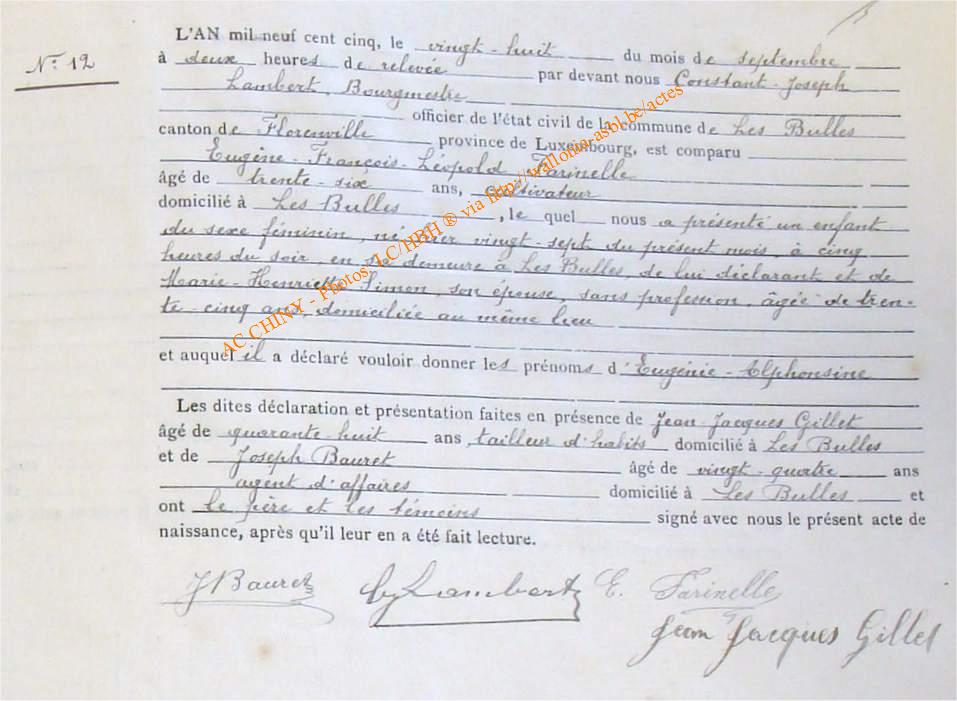 N° 12
L'AN mil neuf cent cinq, le vingt-huit du mois de septembre
à deux heures de relevée par devant nous Constant-Joseph
Lambert, Bourgmestre
officier de l'état civil de la commune de Les Bulles
canton de Florenville province de Luxembourg, est comparu
Eugène-François-Léopold Farinelle
âgé de trente-six ans, cultivateur
domicilié à Les Bulles, le quel nous a présenté un enfant
du sexe féminin, né hier vingt-sept du présent mois, à cinq
heures du soir, en sa demeure à Les Bulles, de lui déclarant et de
Marie-Henriette Simon, son épouse, sans profession, âgée de tren-
te-cinq ans, domiciliée au même lieu
et auquel il a déclaré vouloir donner les prénoms d'Eugénie-Alphonsine
Les dites déclaration et présentation faites en présence de Jean-Jacques Gillet
âgé de quarante-huit ans, tailleur d'habits domicilié à Les Bulles
et de Joseph Bauret âgé de vingt-quatre ans
agent d'affaires domicilié à Les Bulles et
ont le père et les témoins signé avec nous le présent acte de
naissance, après qu'il leur en a été fait lecture.
J Bauret Lambert E. Farinelle
Jean Jacques Gillet
AC CHINY - Photos LC/HBH ® via http://wallonia-asbl.be/actes